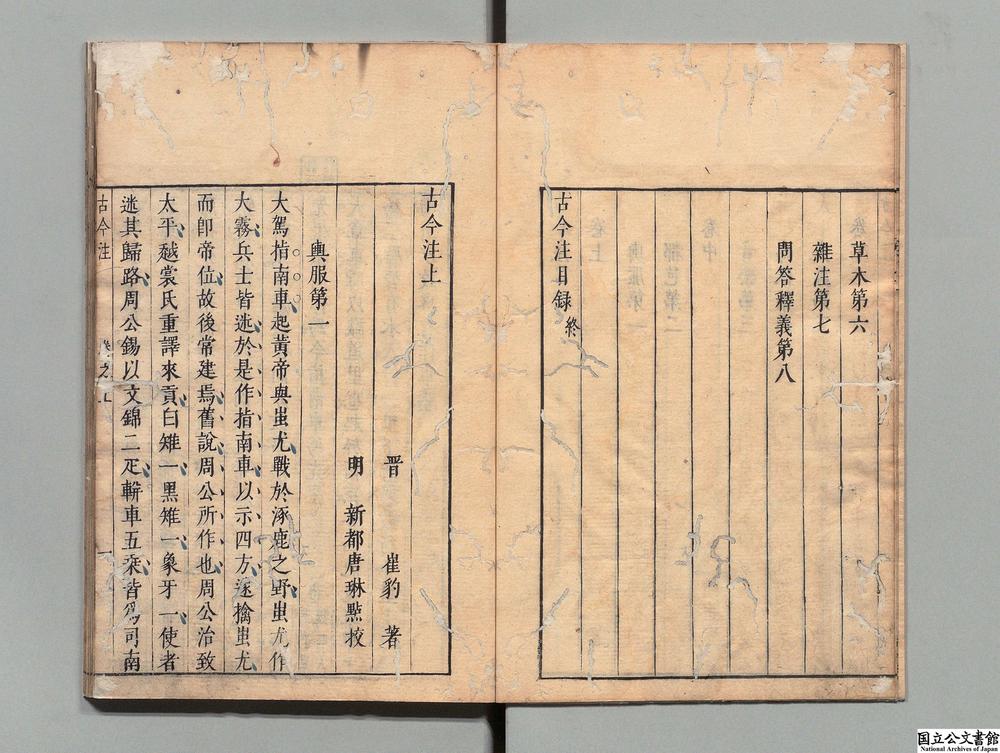 草木第六
雜注第七
問答釋義第八
古今注目録 終
古今注上
晋 崔豹 著
明 新都唐琳㸃挍
輿服第一
大駕指南車起黃帝與蚩尤戰於涿鹿之野蚩尤作
大霧兵士皆迷於是作指南車以示四方遂擒蚩尤
而即帝位故後常建焉舊說周公所作也周公治致
太平越裳氏重譯來貢白雉一黑雉一象牙一使者
迷其歸路周公錫以文錦二疋軿車五乗皆爲司南
古今注 卷之上 一
国立公文書館
National Archives of Japan